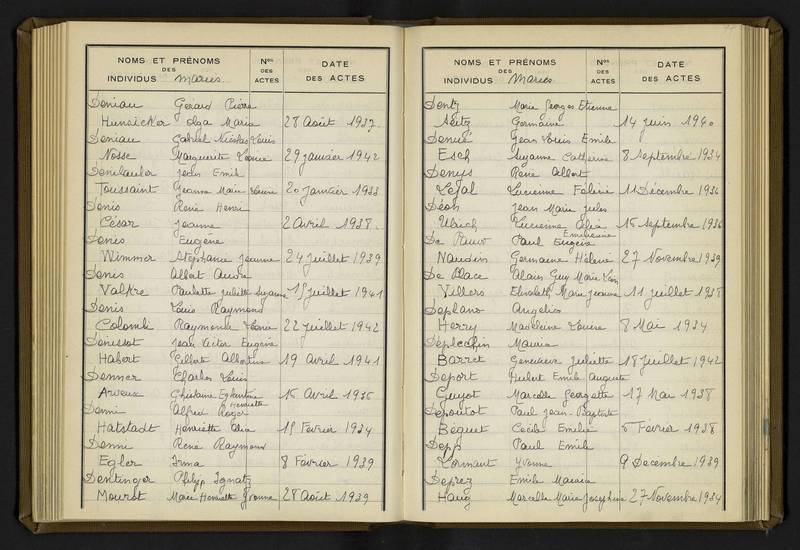 NOMS ET PRÉNOMS
DES
INDIVIDUS Mariés
Nos
DES
ACTES
DATE
DES ACTES
Deniau Gérard Pierre
Hunsicker Olga Maria 28 Août 1937
Deniau Gabriel Nicolas Louis
Nosse Marguerite 29 janvier 1942
Jules Emile
Toussaint Jeanne Marie Lucie 20 janvier 1933
Denis René Henri
César Jeanne 2 Avril 1938
Denis Eugène
Wimmer Stéphanie Jeanne 24 juillet 1939
Denis Albert André
Valkre Paulette Juliette Suzanne 15 juillet 1941
Denis Louis Raymond
Colomb Raymonde 22 juillet 1942
Denissot Jean Victor Eugène
Habert Gilberte Albertine 19 Avril 1941
Denner Charles Louis
Ghislaine Eglantine Henriette Avril 1936
Denni Alfred Roger
Hatstadt Henriette 15 Février 1934
Denni René Raymond
Egler Irma 8 Février 1939
Dentinger Philipp Ignatz
Mourot Marie Henriette Yvonne 28 Août 1939
NOMS ET PRÉNOMS
DES
INDIVIDUS Mariés
Nos
DES
ACTES
DATE
DES ACTES
Dentz Marie Georges Etienne
Seitz Germaine 14 juin 1940
Jean Louis Emile
Esch Suzanne Catherine 8 Septembre 1934
Denys René Albert
Legal Lucienne Félicie 11 Décembre 1936
Déon Jean Marie Jules
Ulrich Lucienne 15 septembre 1936
De Pauw Paul Eugène
Naudin Germaine Hélène 27 Novembre 1939
De Place Alain Guy Marie
Villers Elisabeth Marie Jeanne 11 juillet 1938
Deplano Angelin
Herry Madeleine Louise 8 Mai 1934
Deplechin
Barret Geneviève Juliette 18 juillet 1942
Deport Hubert Emile Auguste
Guyot Marcelle Georgette 17 Mai 1938
Depoutot Paul Jean-Baptiste
Béguet Cécile Emilie 5 Février 1938
Depp Paul Emile
Lormant Yvonne 9 Décembre 1939
Deprez Emile
Haug Marcelle Marie Joséphine 27 Novembre 1934